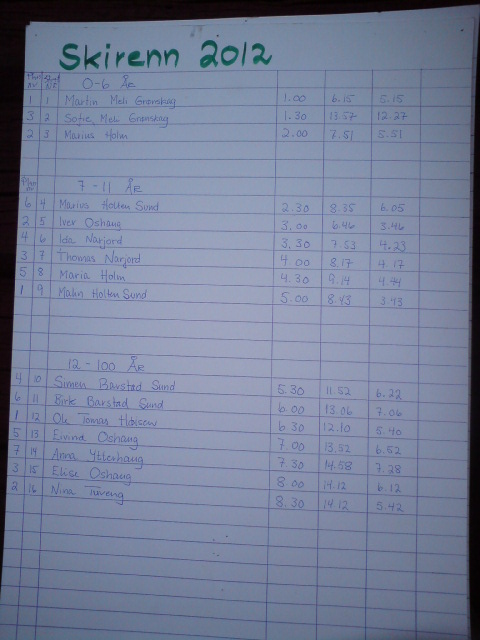 Skirenn 2012
0-6 ÅR
1 1 Martin Meh Grønskag 1.00 6.15 5.15
3 2 Sofie Meh Grønskag 1.30 13.57 12.27
2 3 Marius Holm 2.00 7.51 5.51
7-11 ÅR
6 4 Marius Holten Sund 2.30 8.35 6.05
2 5 Iver Oshaug 3.00 6.46 3.46
4 6 Ida Narjord 3.30 7.53 4.23
3 7 Thomas Narjord 4.00 8.17 4.17
5 8 Maria Holm 4.30 9.14 4.44
1 9 Malin Holten Sund 5.00 8.43 3.43
12-100 ÅR
4 10 Simen Barstad Sund 5.30 11.52 6.22
6 11 Birk Barstad Sund 6.00 13.06 7.06
1 12 Ole Tomas 6.30 12.10 5.40
5 13 Eivind Oshaug 7.00 13.52 6.52
7 14 Anna Ytterhaug 7.30 14.58 7.28
3 15 Elise Oshaug 8.00 14.12 6.12
2 16 Nina 8.30 14.12 5.42